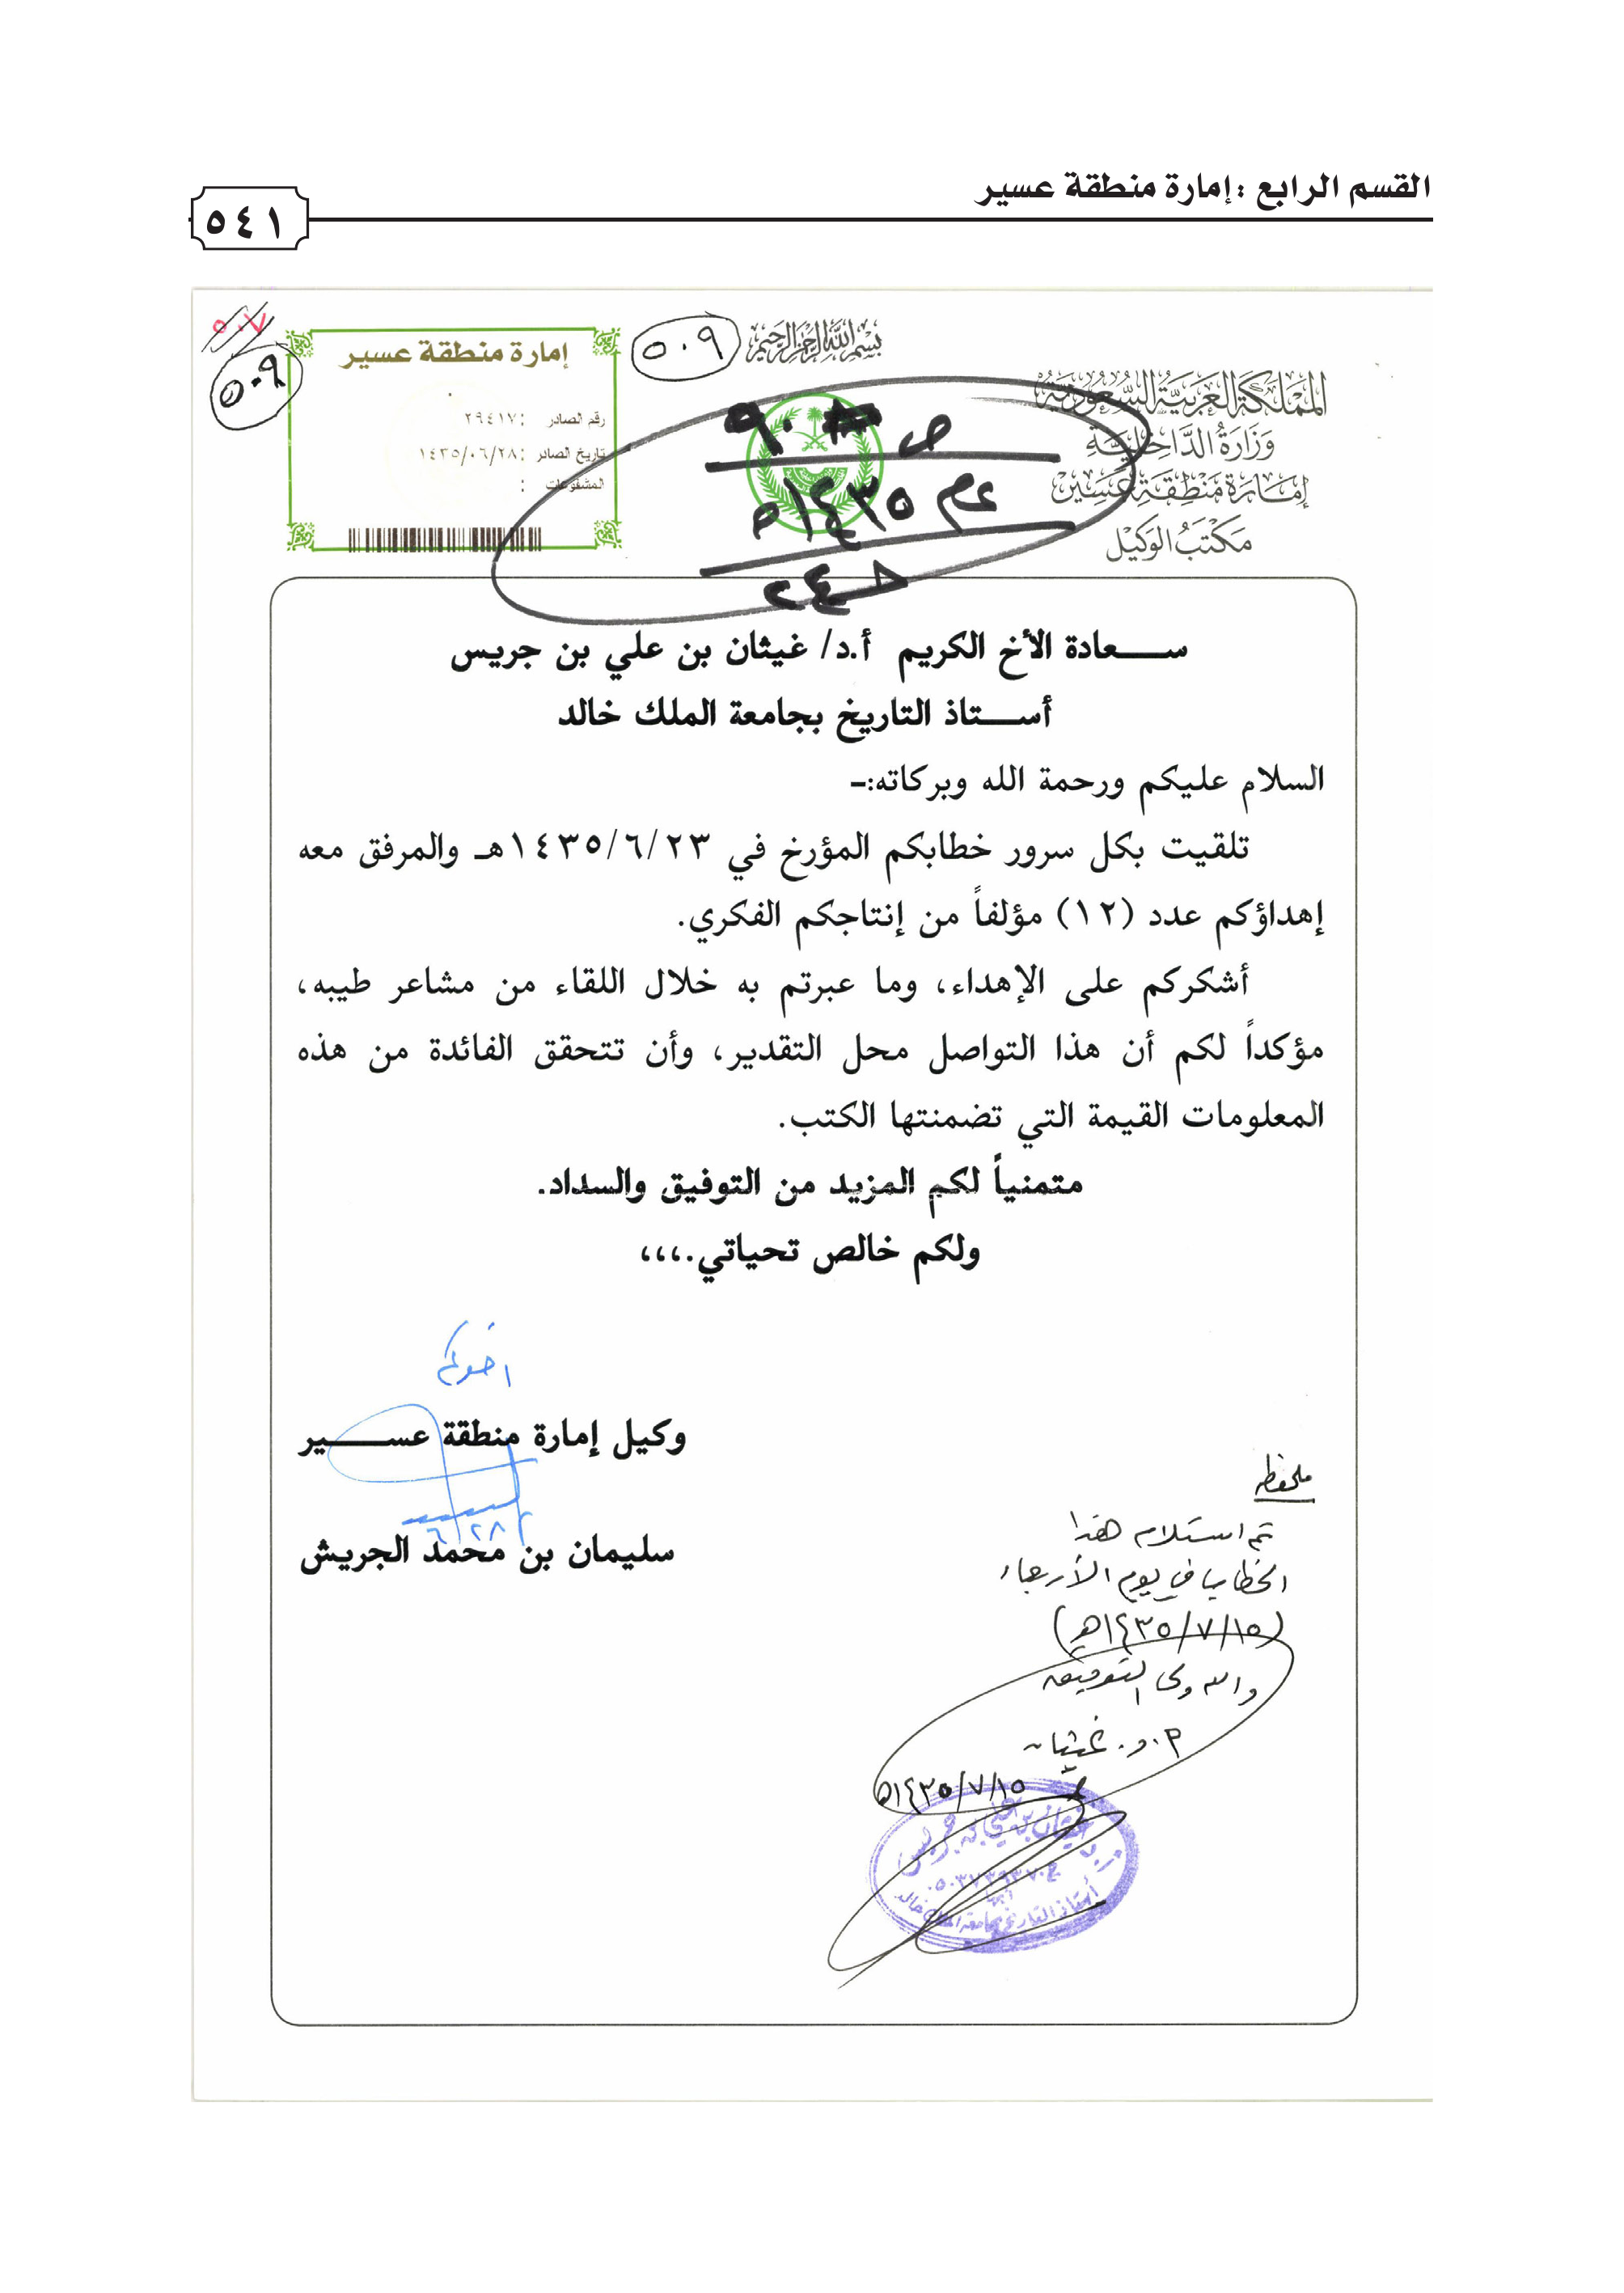 القسم الرابع : إمارة منطقة عسير
٥٤١
بسم الله الرحمن الرحيم
المملكة العربية السعودية
وزارة الداخلية
إمارة منطقة عسير
مكتب الوكيل
٥٠٩
٥٠٧
٥٠٩
إمارة منطقة عسير
رقم الصادر : ٢٩٤١٧
تاريخ الصادر : ١٤٣٥/٠٦/٢٨
المشفوعات :
ص ٩٠
عام ١٤٣٥هـ
سعادة الأخ الكريم أ.د/ غيثان بن علي بن جريس
أستاذ التاريخ بجامعة الملك خالد
السلام عليكم ورحمة الله وبركاته:-
تلقيت بكل سرور خطابكم المؤرخ في ١٤٣٥/٦/٢٣هـ والمرفق معه
إهداؤكم عدد (١٢) مؤلفاً من إنتاجكم الفكري.
أشكركم على الإهداء، وما عبرتم به خلال اللقاء من مشاعر طيبه،
مؤكداً لكم أن هذا التواصل محل التقدير، وأن تتحقق الفائدة من هذه
المعلومات القيمة التي تضمنتها الكتب.
متمنياً لكم المزيد من التوفيق والسداد.
ولكم خالص تحياتي.،،،
اخوكم
وكيل إمارة منطقة عسير
٦/٢٨
سليمان بن محمد الجريش
ملحوظه
تم استلام هذا
الخطاب في يوم الأربعاء
(١٤٣٥/٧/١٥هـ)
والله ولي التوفيق
أ.د. غيثان
١٤٣٥/٧/١٥هـ
أ.د غيثان بن علي بن جريس
أستاذ التاريخ بجامعة الملك خالد